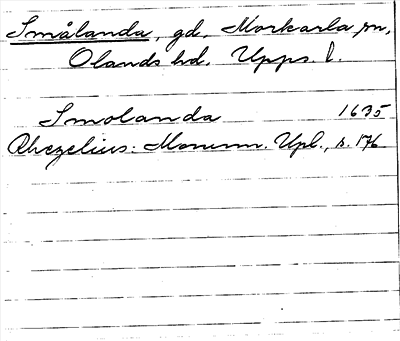 Smålanda, gd, Morkarla sn,
Olands hd, Upps. l.
Smolanda 1635
Rhezelius: Monum. Upl., s. 176